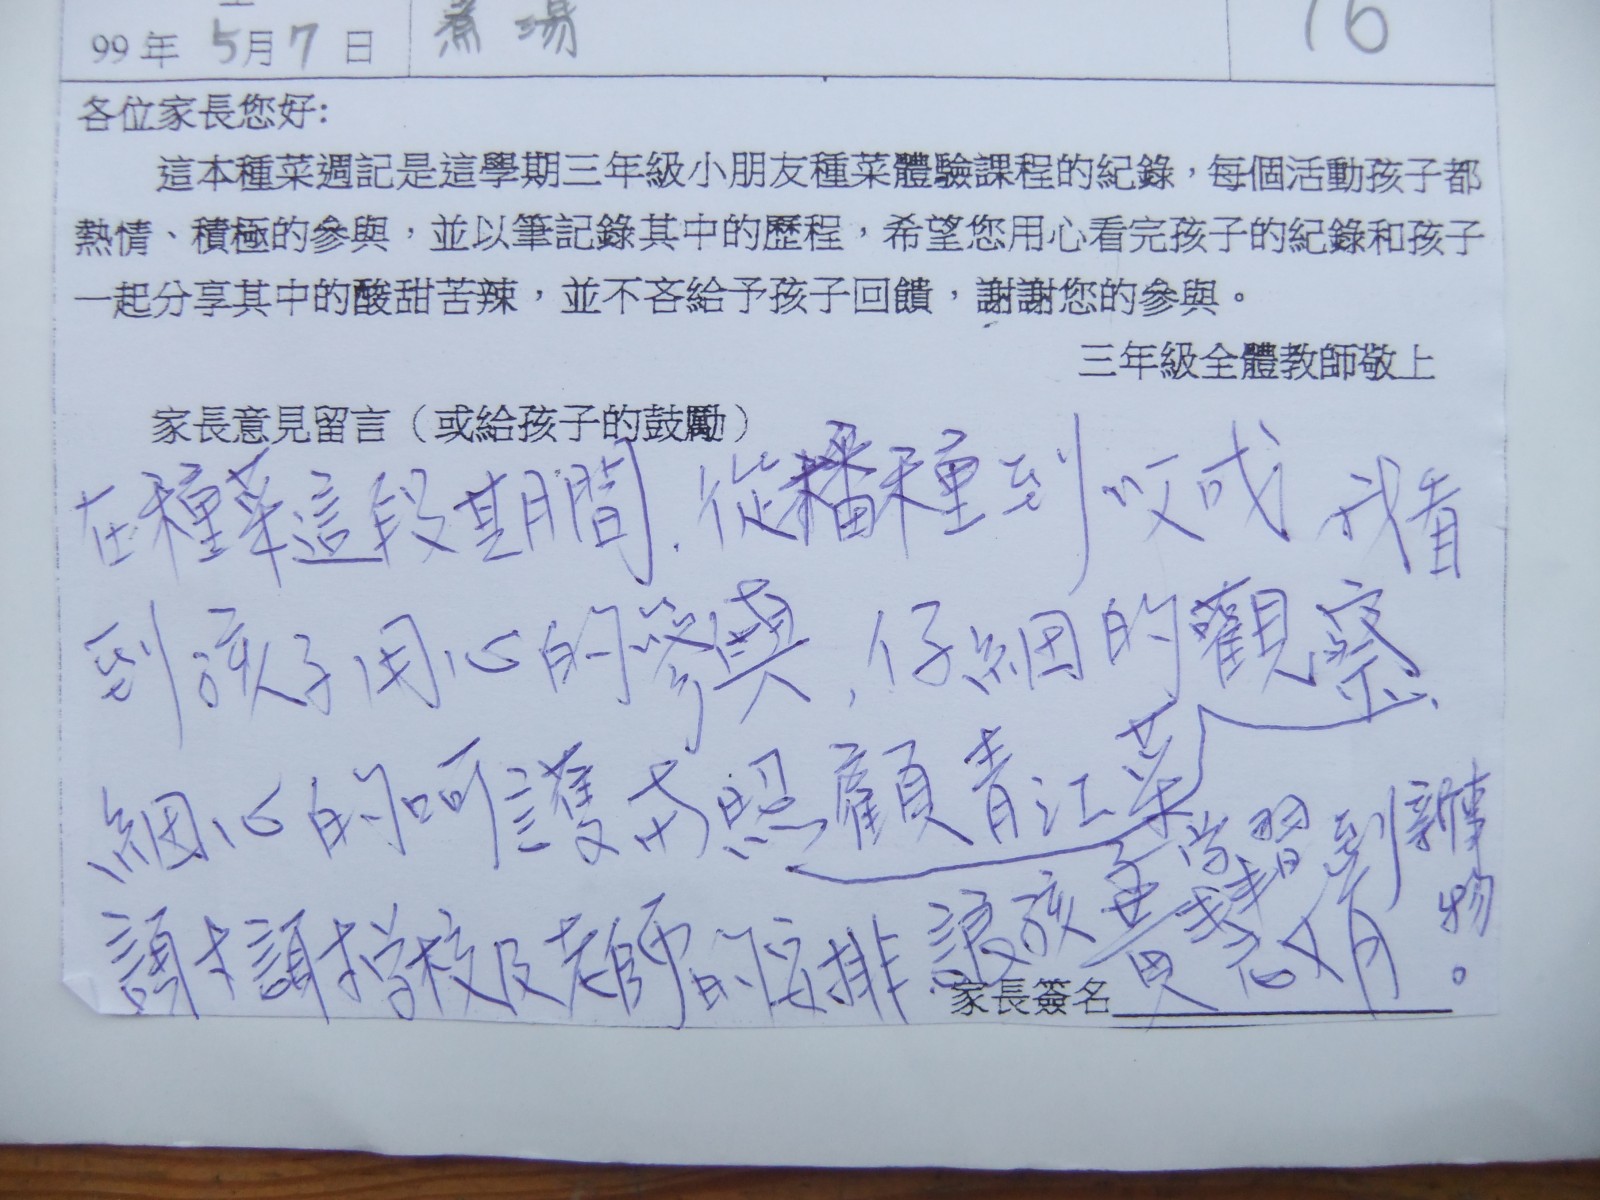 99年 5月7日 煮湯 16
各位家長您好:
這本種菜週記是這學期三年級小朋友種菜體驗課程的紀錄,每個活動孩子都
熱情、積極的參與,並以筆記錄其中的歷程,希望您用心看完孩子的紀錄和孩子
一起分享其中的酸甜苦辣,並不吝給予孩子回饋,謝謝您的參與。
三年級全體教師敬上
家長意見留言(或給孩子的鼓勵)
在種菜這段期間,從播種到收成 我看
到孩子用心的參與,仔細的觀察、
細心的呵護 照顧青江菜
謝謝學校及老師的安排 讓孩 學習到新事物。
家長簽名 黃